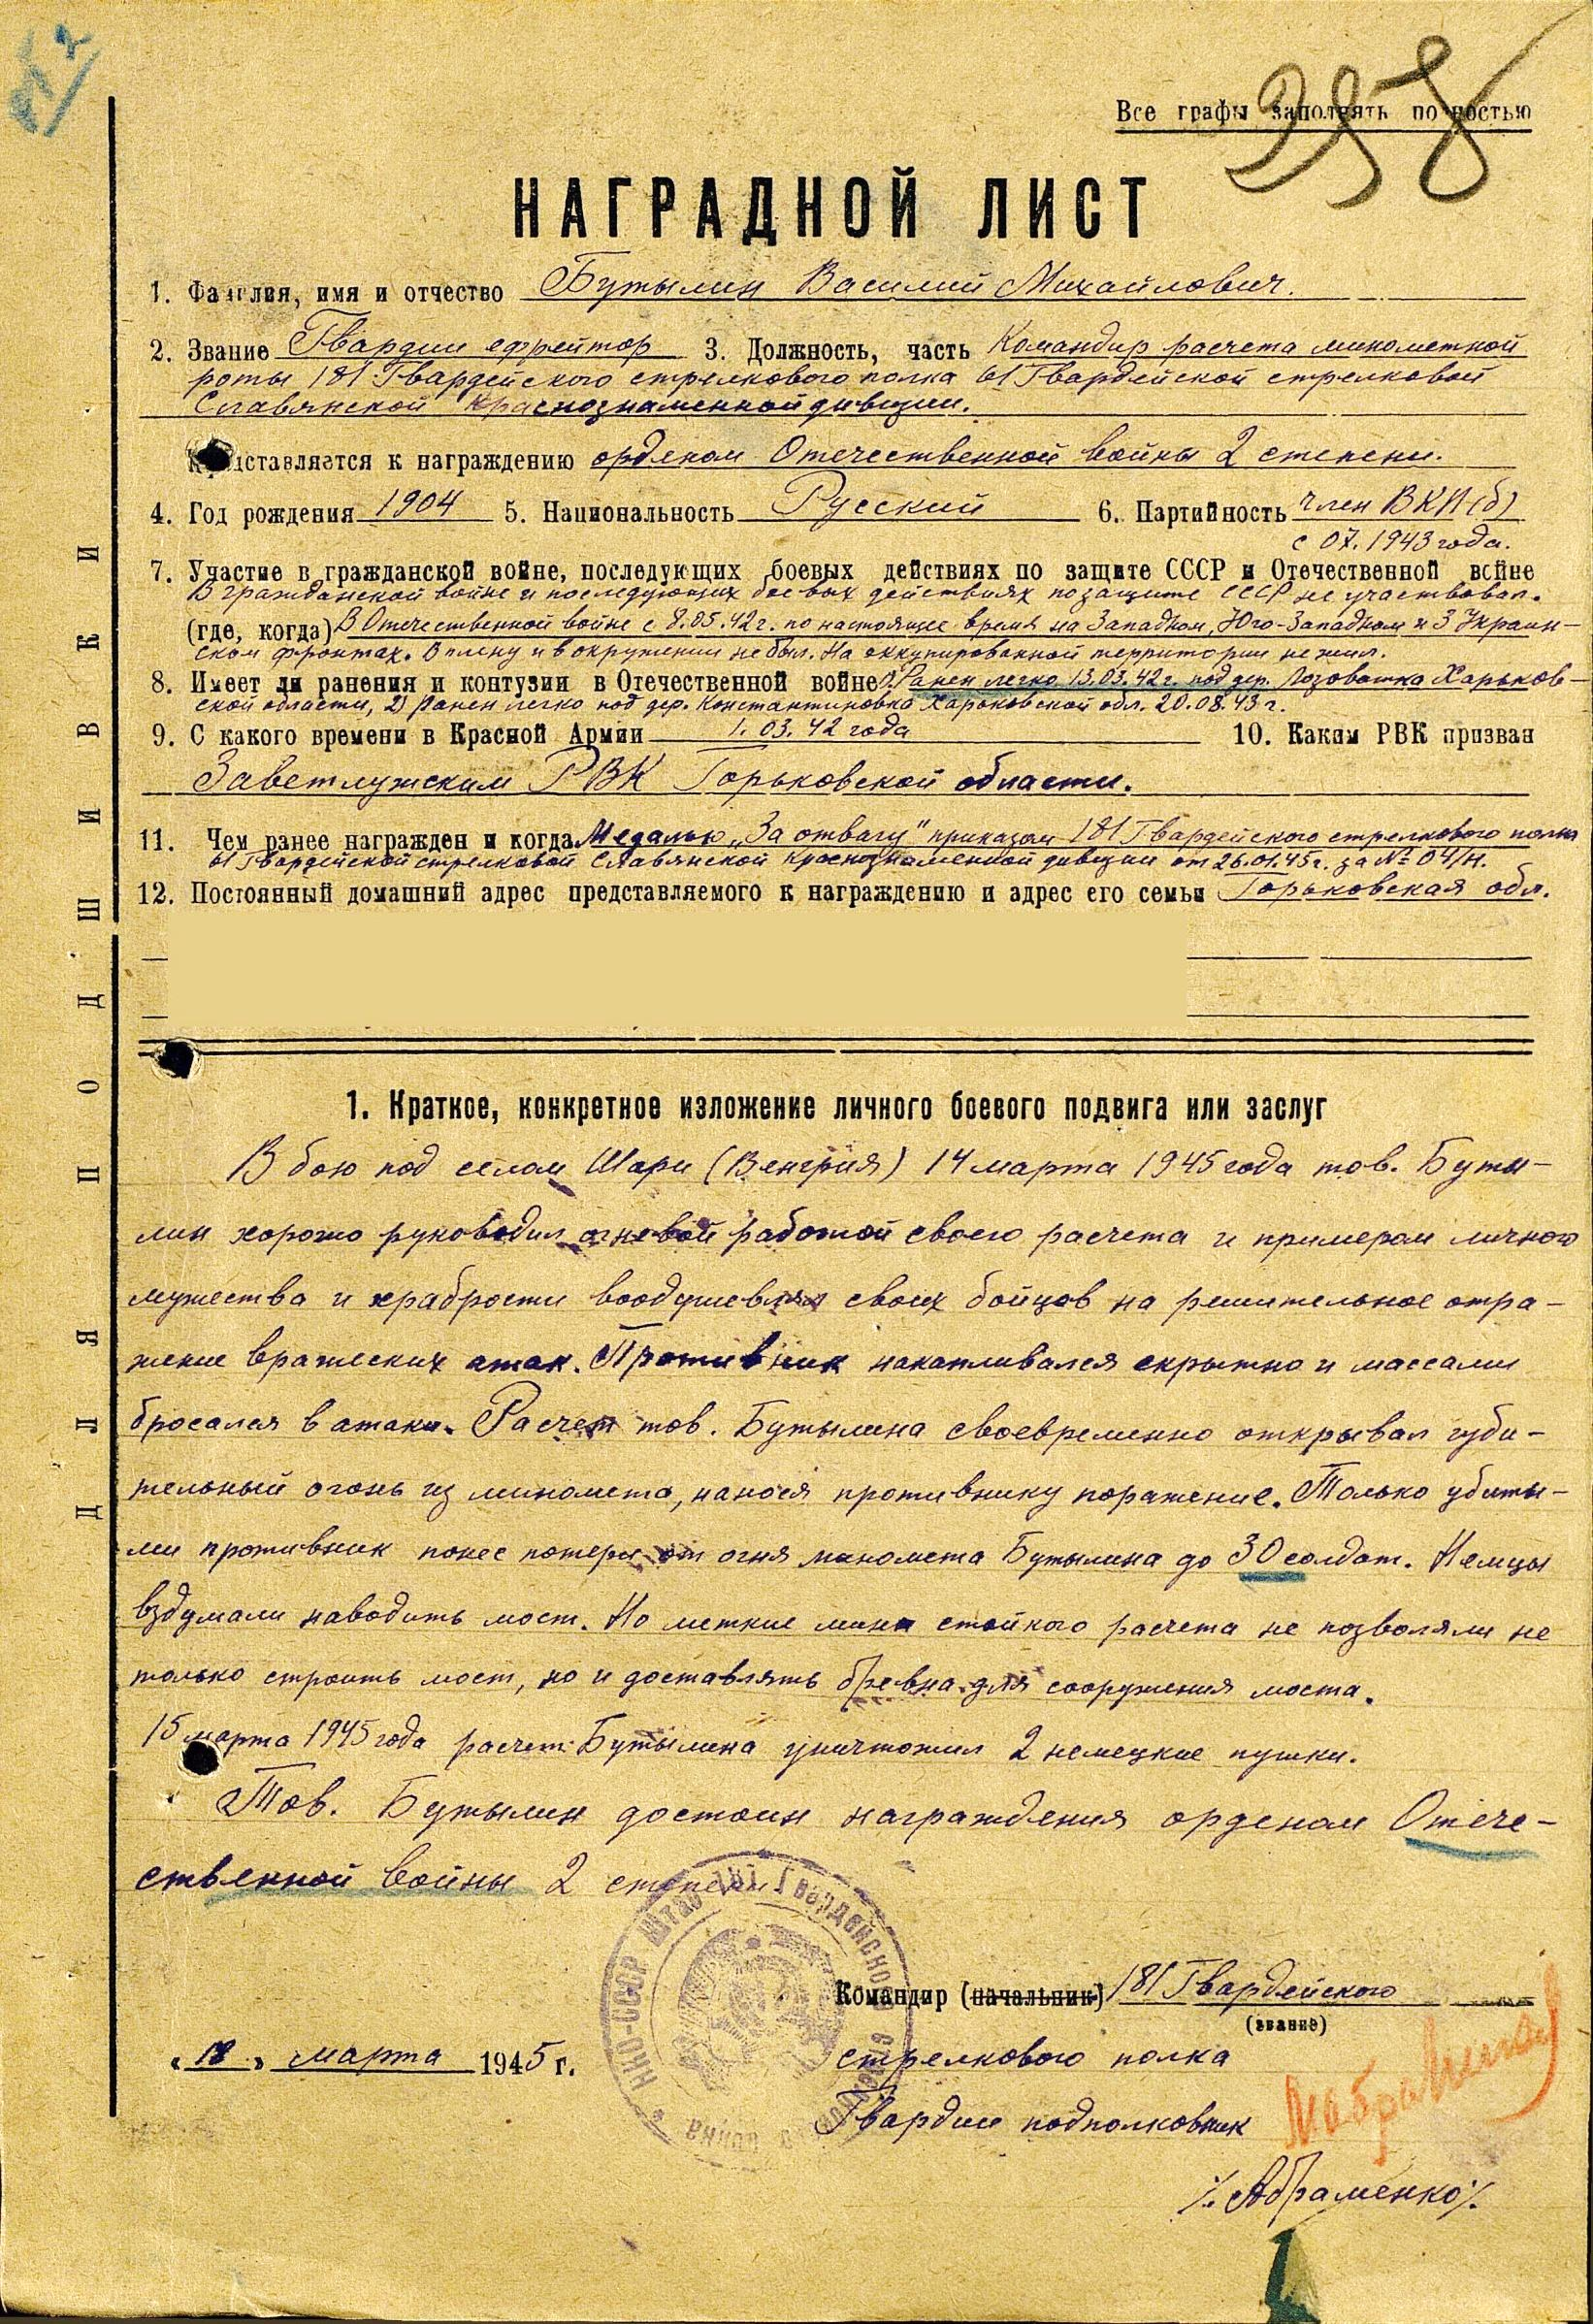 Все графы заполнять полностью
398
НАГРАДНОЙ ЛИСТ
1. Фамилия, имя и отчество Бутылин Василий Михайлович.
2. Звание Гвардии ефрейтор 3. Должность, часть Командир расчета минометной
роты 181 Гвардейского стрелкового полка 61 Гвардейской стрелковой
Славянской Краснознаменной дивизии.
представляется к награждению орденом Отечественной войны 2 степени.
4. Год рождения 1904 5. Национальность Русский 6. Партийность член ВКП(б)
с 07.1943 года.
7. Участие в гражданской войне, последующих боевых действиях по защите СССР и Отечественной войне
В гражданской войне и последующих боевых действиях по защите СССР не участвовал.
(где, когда) В Отечественной войне с 8.05.42 г. по настоящее время на Западном, Юго-Западном и 3 Украин-
ском фронтах. В плену и в окружении не был. На оккупированной территории не жил.
8. Имеет ли ранения и контузии в Отечественной войне 1) Ранен легко 13.03.42 г. под дер. Лозоватка Харьков-
ской области, 2) Ранен легко под дер. Константиновка Харьковской обл. 20.08.43 г.
9. С какого времени в Красной Армии 1.03.42 года 10. Каким РВК призван
Заветлужским РВК Горьковской области.
11. Чем ранее награжден и когда Медалью „За отвагу" приказом 181 Гвардейского стрелкового полка
61 Гвардейской стрелковой Славянской Краснознаменной дивизии от 26.01.45 г. за № 04/н.
12. Постоянный домашний адрес представляемого к награждению и адрес его семьи Горьковская обл.
1. Краткое, конкретное изложение личного боевого подвига или заслуг
В бою под селом Шари (Венгрия) 14 марта 1945 года тов. Буты-
лин хорошо руководил огневой работой своего расчета и примером личного
мужества и храбрости воодушевлял своих бойцов на решительное отра-
жение вражеских атак. Противник накапливался скрытно и массами
бросался в атаки. Расчет тов. Бутылина своевременно открывал губи-
тельный огонь из миномета, нанося противнику поражение. Только убиты-
ми противник понес потери от огня миномета Бутылина до 30 солдат. Немцы
вздумали наводить мост. Но меткие мины стойкого расчета не позволяли не
только строить мост, но и доставлять бревна для сооружения моста.
15 марта 1945 года расчет Бутылина уничтожил 2 немецкие пушки.
Тов. Бутылин достоин награждения орденом Отече-
ственной войны 2 степени.
Командир (начальник) 181 Гвардейского
(звание)
„18" марта 1945 г.
стрелкового полка
Гвардии подполковник
/Абраменко/
НКО-СССР Штаб 181 Гвардейского стрелкового полка
ДЛЯ ПОДШИВКИ